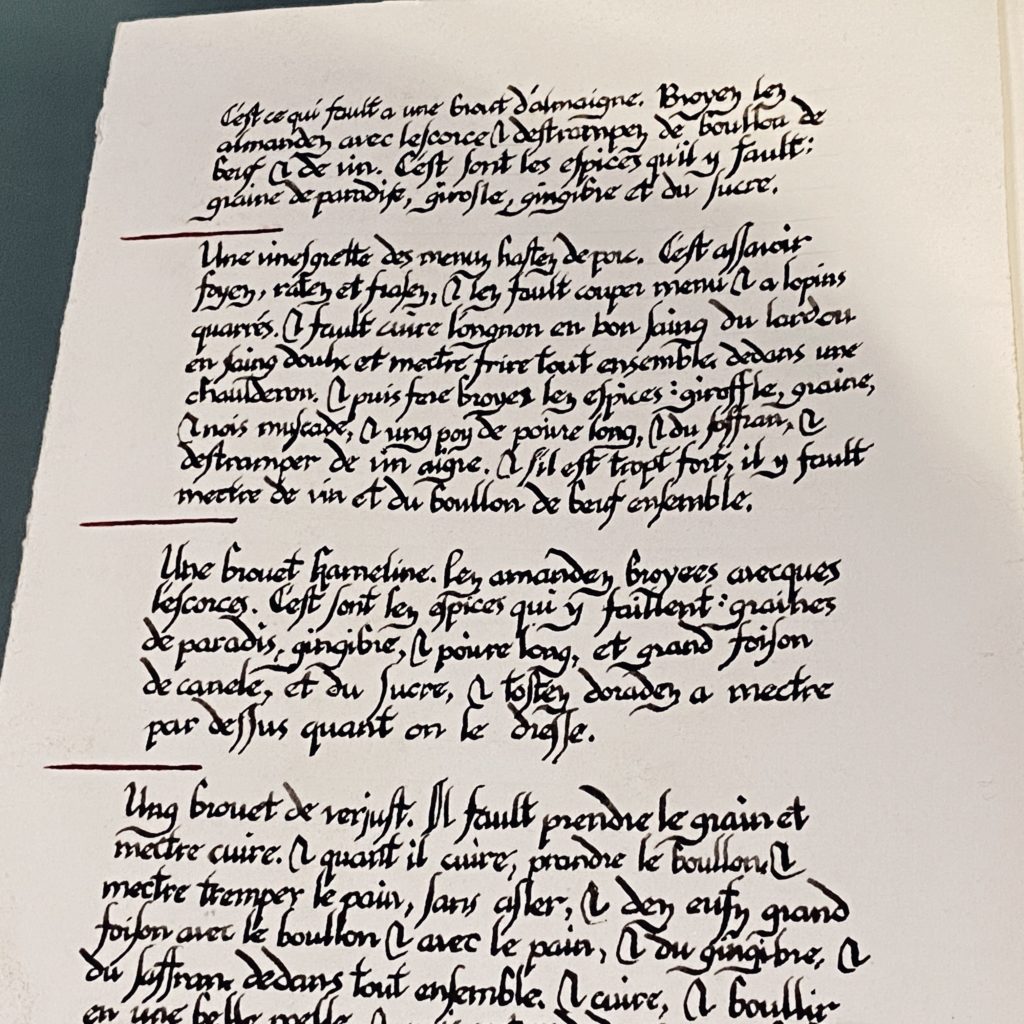 C'est ce qui fault a une brout d'almaigne. Broyez lez
almandez avec lescorce & destrampez de boullon de
beuf & de vin. C'est sont les espices qu'il y fault:
graine de paradise, girofle, gingibre et du sucre.
Une vinesgrette des menuz hastez de porc. C'est assavoir
foyez, ratez et frasez, & lez fault couper menu & a lopins
quarrés. & fault cuire l'ongnon en bon saing du lard ou
en saing doulx et mectre frire tout ensemble dedans une
chaulderon. & puis fere broyez lez espices: giroffle, graine,
& nois muscade, & ung poy de poivre long, & du saffran, &
destramper de vin aigre. & s'il est tropt fort, il y fault
mectre de vin et du boullon de beuf ensemble.
Une brouet hameline. Lez amandez broyees avecques
lescorces. C'est sont lez espices qui y faillent: graines
de paradis, gingibre, & poivre long, et grand foison
de canele, et du sucre, & tostez doradez a mectre
par dessus quant on le dresse.
Ung brouet de verjust. Il fault prendre le grain et
mectre cuire. & quant il cuire, prandre le boullon &
mectre tremper le pain, sans asler, & dez eufz grand
foison avec le boullon & avec le pain, & du gingibre, &
du saffran dedans tout ensemble. & cuire, & boullir
en une belle paelle.